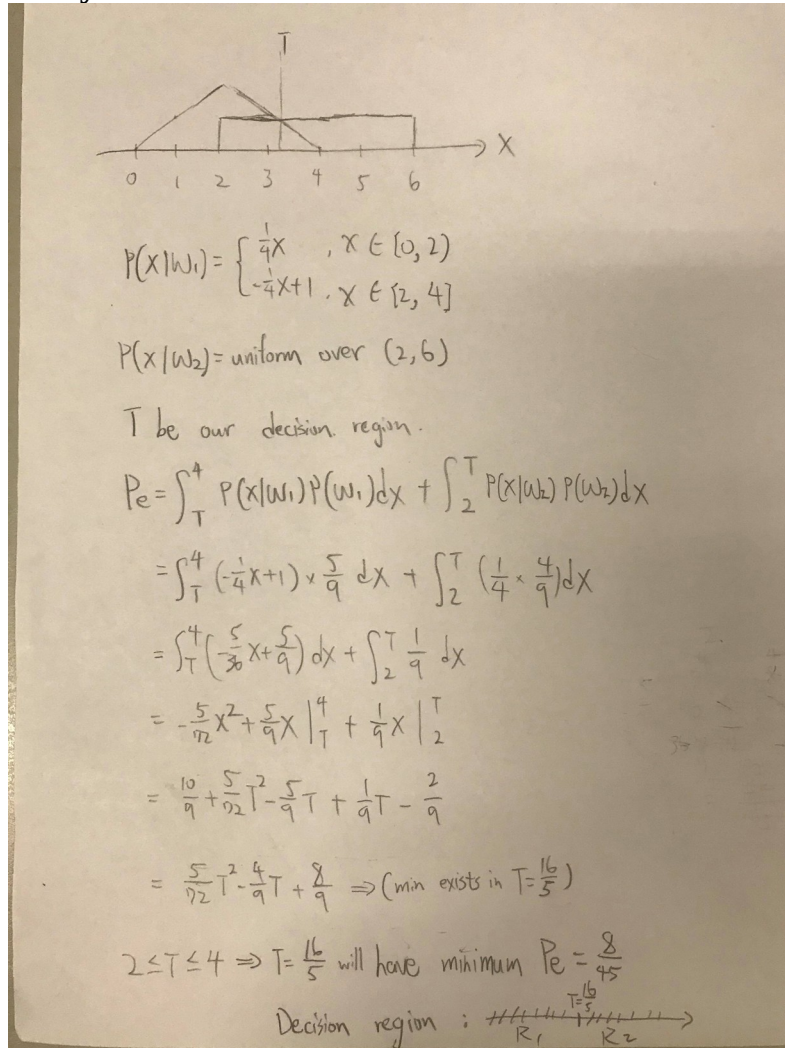 T
X
0 1 2 3 4 5 6
P(x|W₁) = { 1/4 x , x ∈ [0, 2)
-1/4 x+1 , x ∈ [2, 4]
P(x|W₂) = uniform over (2,6)
T be our decision region.
Pe = ∫_T^4 P(x|W₁)P(W₁)dx + ∫_2^T P(x|W₂)P(W₂)dx
= ∫_T^4 (-1/4 x+1) × 5/9 dx + ∫_2^T (1/4 × 4/9)dx
= ∫_T^4 (-5/36 x + 5/9) dx + ∫_2^T 1/9 dx
= -5/72 x² + 5/9 x |_T^4 + 1/9 x |_2^T
= 10/9 + 5/72 T² - 5/9 T + 1/9 T - 2/9
= 5/72 T² - 4/9 T + 8/9 ⇒ (min exists in T = 16/5)
2 ≤ T ≤ 4 ⇒ T = 16/5 will have minimum Pe = 8/45
T = 16/5
Decision region :
R₁ R₂